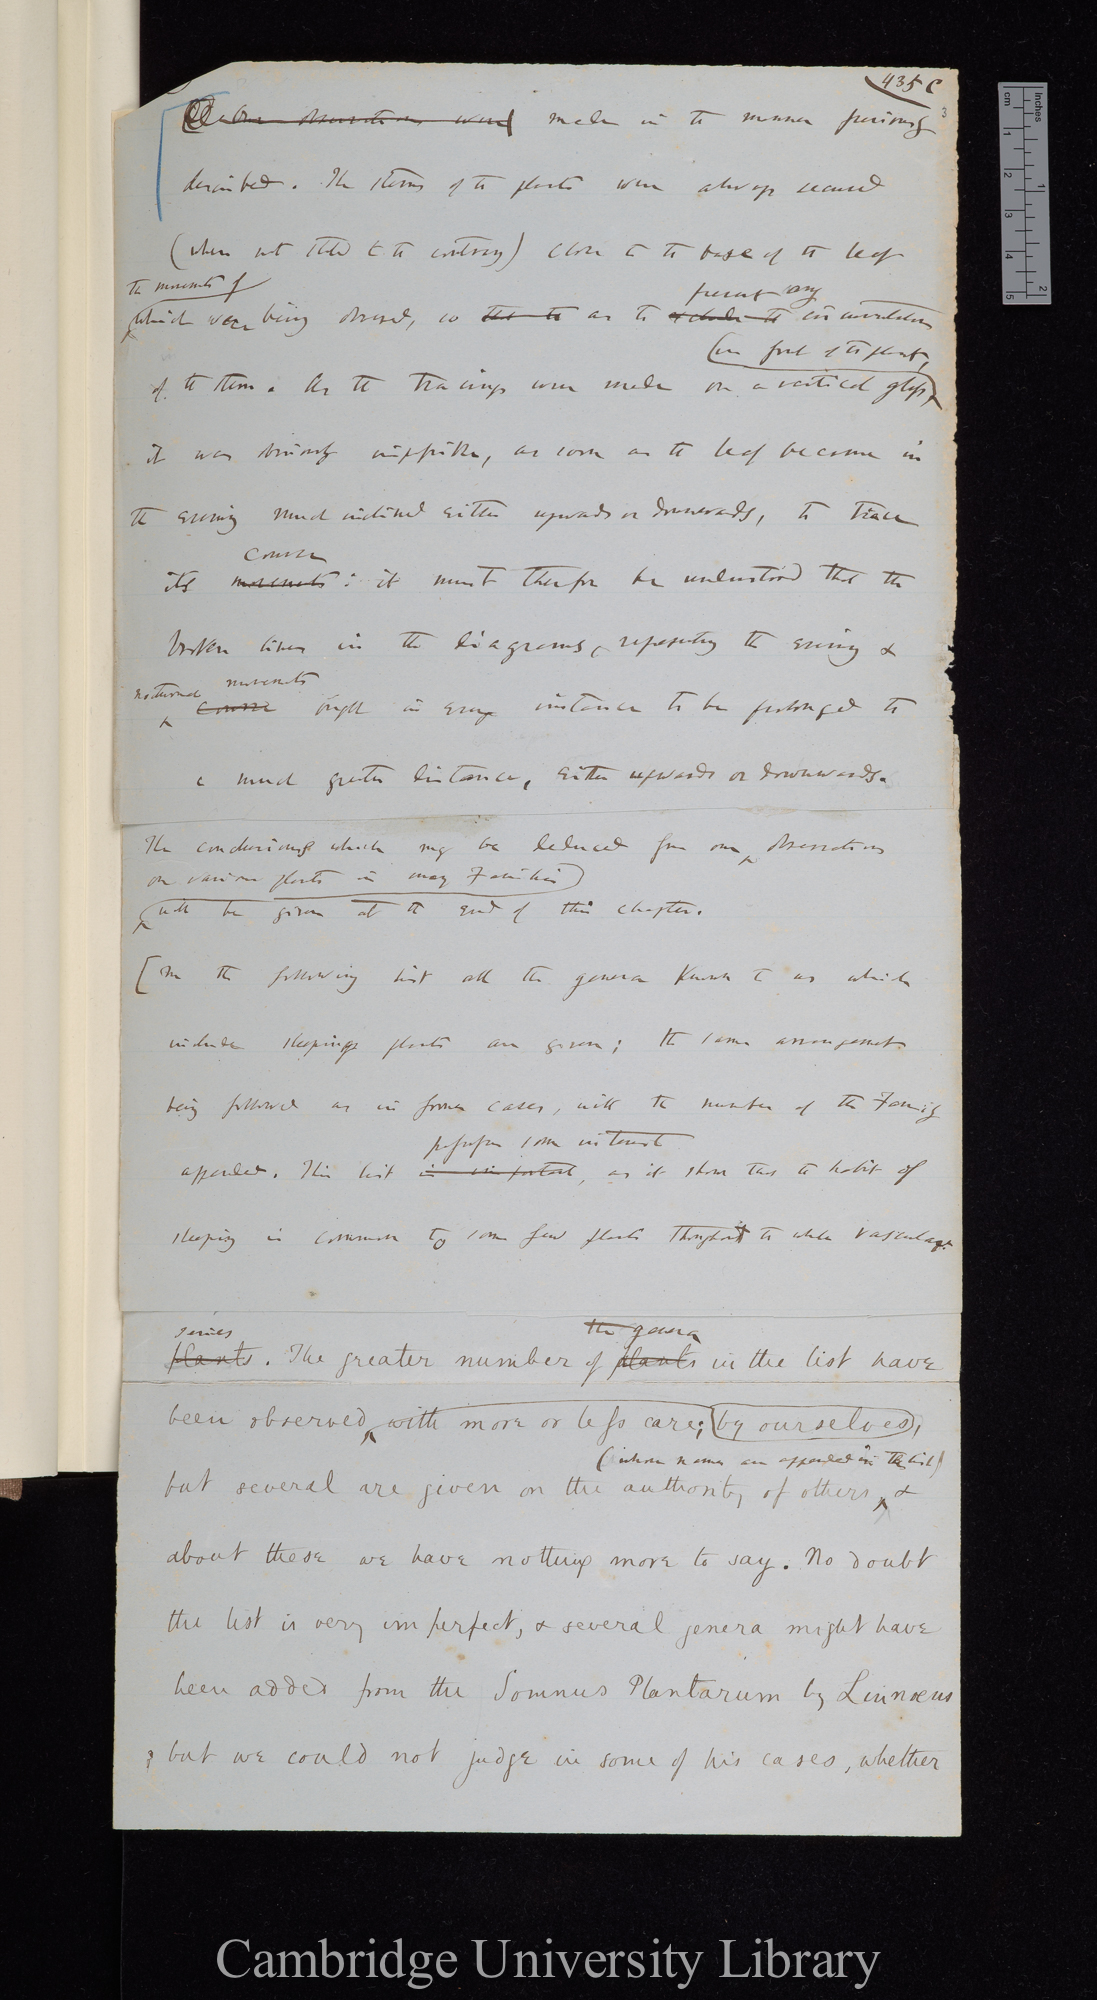 435 C
3
Our observations were made in the manner previously
described. The stems of the plants were always secured
(when not stated to the contrary) close to the base of the leaf
the movements of
which were being observed, so that to as to exclude the circumnutation
prevent any
of the stem. As the tracings were made on a vertical glass
(in front of the plant,
it was obviously impossible, as soon as the leaf became in
the evening much inclined either upwards or downwards, to trace
course
its movements: it must therefore be understood that the
broken lines in the diagrams, representing the evening &
nocturnal movements
course ought in every instance to be prolonged to
a much greater distance, either upwards or downwards.
The conclusions which may be deduced from our observations
on various plants in many Families
will be given at the end of this chapter.
[In the following list all the genera known to us which
include sleeping plants are given; the same arrangement
being followed as in former cases, with the number of the Family
possesses some interest
appended. This list is important, as it shows that the habit of
sleeping is common to some few plants throughout the whole vascular
series
plants. The greater number of plants in the list have
the genera
been observed with more or less care; by ourselves,
(whose names are appended in the list)
but several are given on the authority of others, &
about these we have nothing more to say. No doubt
the list is very imperfect, & several genera might have
been added from the Somnus Plantarum by Linnæus
but we could not judge in some of his cases, whether
inches
cm
1
2
3
4
5
1
2
Cambridge University Library